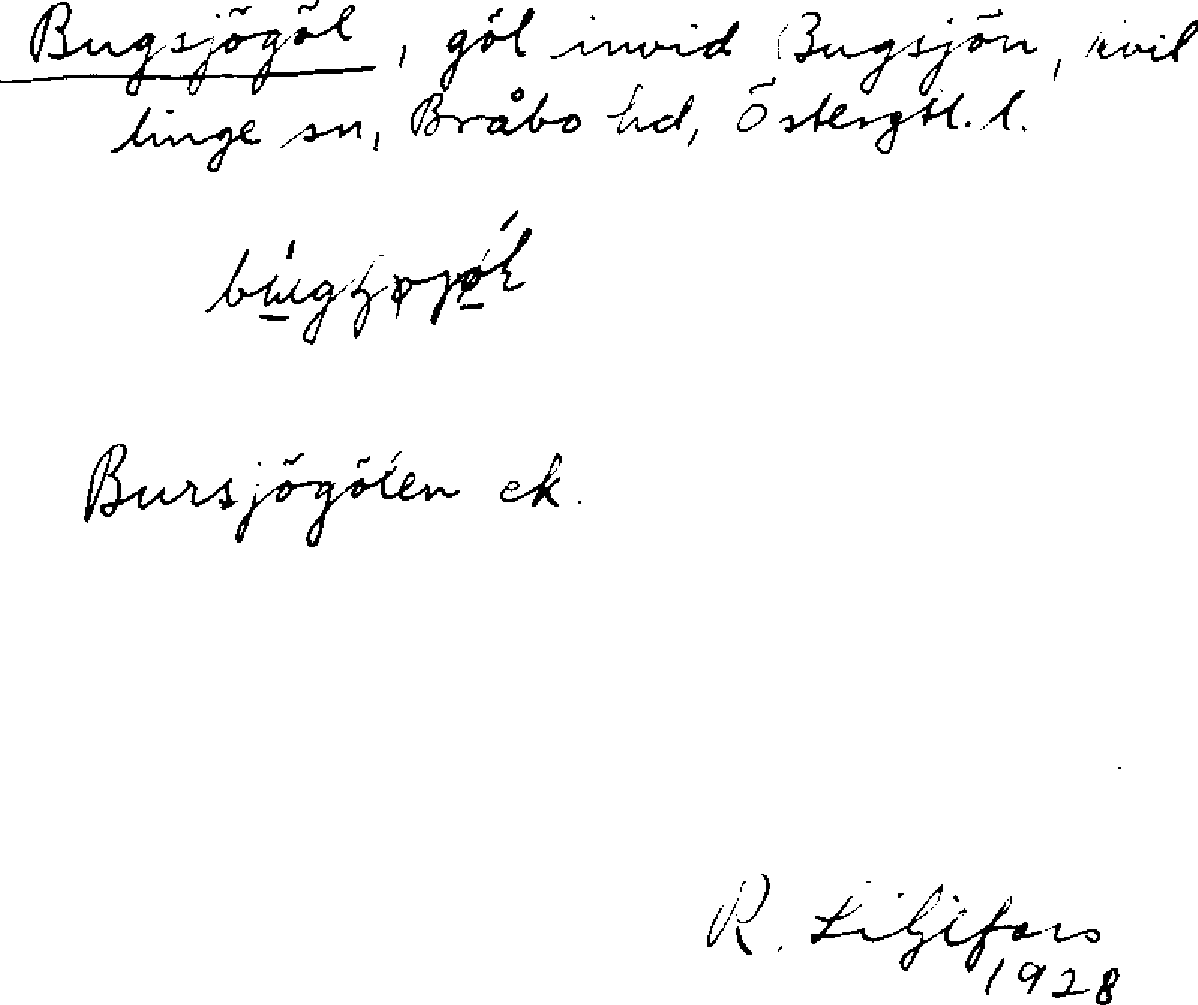 Bugsjögöl, göl invid Bugsjön, Kvil
linge sn, Bråbo hd, Östergtl. l.
Bursjögölen ek.
R. Liljefors
1928